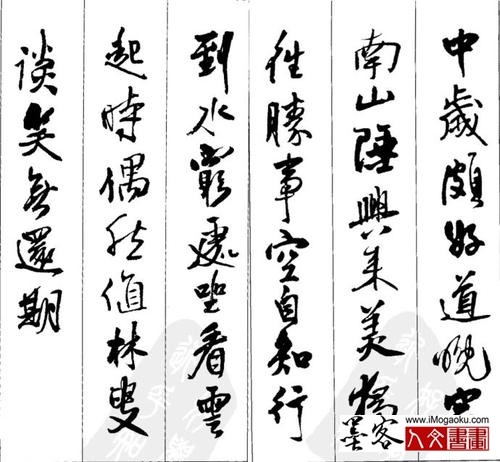 中歲頗好道晚家
南山陲興来美獨
往勝事空自知行
到水窮處坐看雲
起時偶然值林叟
談笑無還期
墨客
www.iMogaoku.com
人文書畫